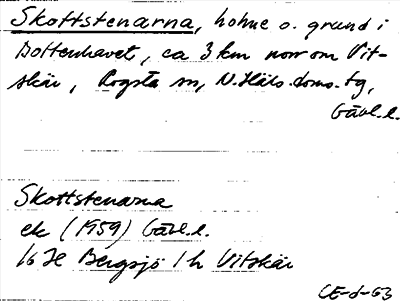 Skottstenarna, holme o. grund i
Bottenhavet, ca 3 km norr om Vit-
skär, Rogsta sn, N.Häls. doms. tg,
Gävl.l.
Skottstenarna
ek (1959) Gävl.l.
16 H Bergsjö 1 h Vitskär
CE-d-63